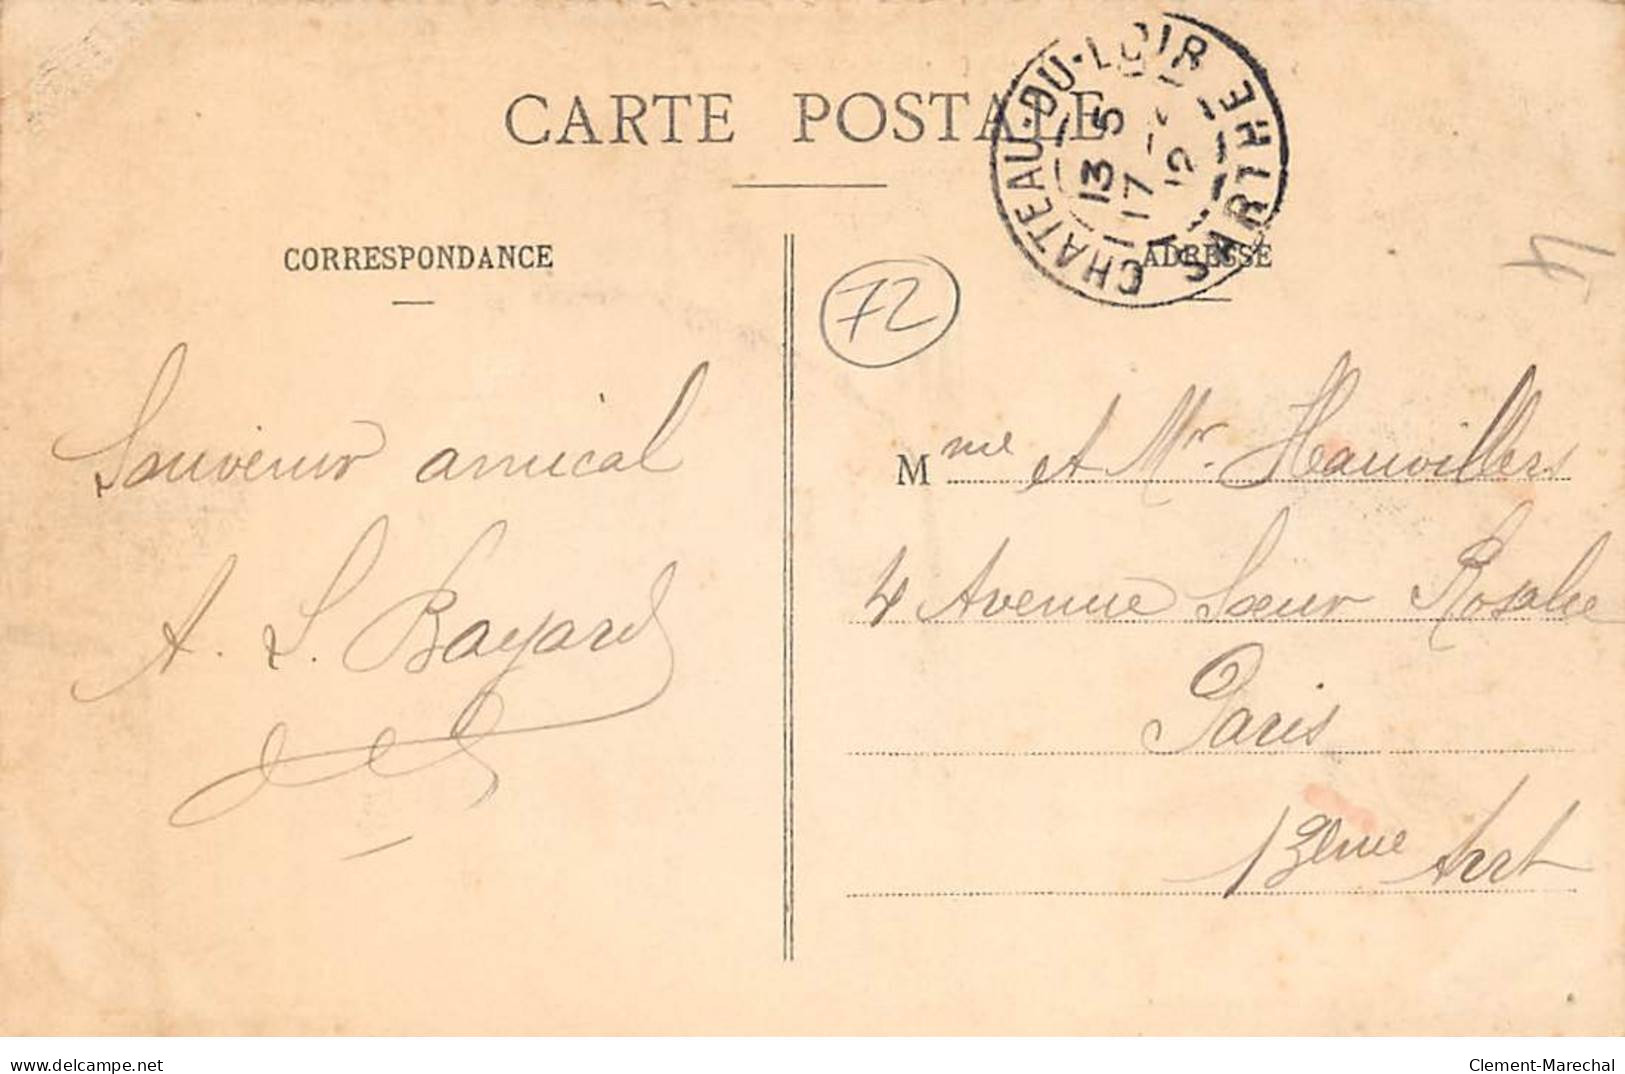 CARTE POSTALE
CHATEAU-DU-LOIR SARTHE
13 5
17
12
CORRESPONDANCE
ADRESSE
72
Souvenir amical
A. L. Bayard
Mme et Mr. Hauvillers
4 Avenue Sœur Rosalie
Paris
13eme Arrt
www.delcampe.net
Clement-Marechal